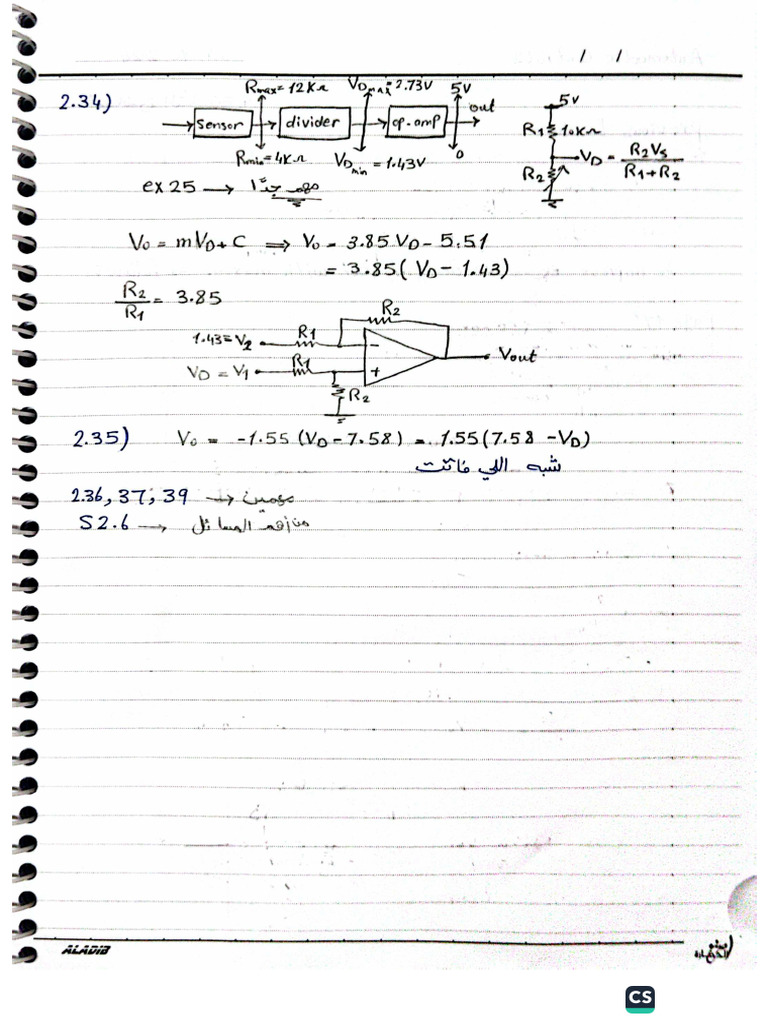 / /
2.34)
Rmax = 12KΩ VDmax = 2.73V 5V
sensor divider op.amp out
Rmin = 4KΩ VDmin = 1.43V 0
5V
R1 10KΩ
VD = R2Vs / R1+R2
R2
ex 25 → مهم جدًا
Vo = mVD + C ⇒ Vo = 3.85VD - 5.51
= 3.85( VD - 1.43)
R2/R1 = 3.85
R2
1.43 = V2 R1 -
VD = V1 R1 + Vout
R2
2.35) Vo = -1.55 (VD - 7.58) = 1.55(7.58 - VD)
شبه اللي فاتت
2.36, 37, 39 → مهمين
S2.6 → المسائل
ALADIB
CS